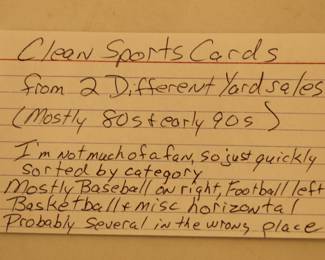 Clean Sports Cards
from 2 Different Yard sales
(Mostly 80s & early 90s)
I'm not much of a fan, so just quickly
sorted by category
Mostly Baseball on right, Football left
Basketball & misc horizontal
Probably several in the wrong place